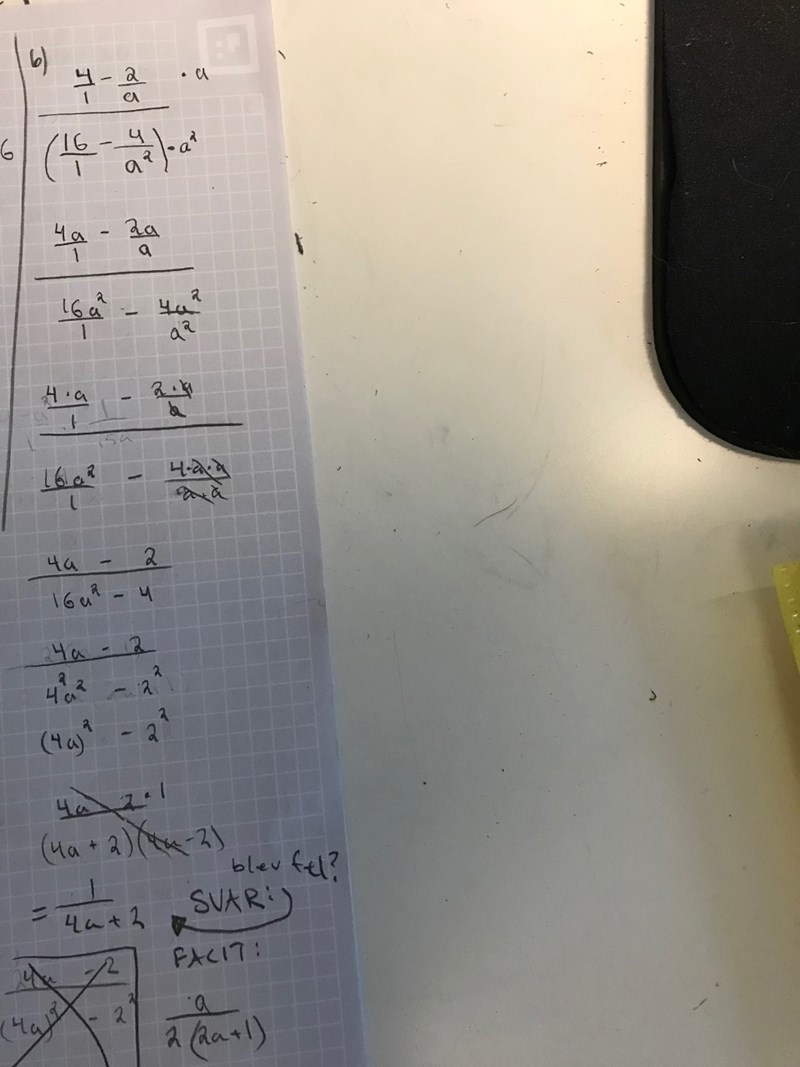 6
b)
4/1 - 2/a · a
(16/1 - 4/a²) · a²
4a/1 - 2a/a
16a²/1 - 4a²/a²
4·a/1 - 2·a/a
16a²/1 - 4·a·a/a·a
4a - 2
16a² - 4
4a - 2
4²a² - 2²
(4a)² - 2²
4a - 2 · 1
(4a + 2)(4a - 2)
blev fel?
= 1/4a + 2 SVAR:
FACIT:
4a - 2
(4a)² - 2²
a
2(2a+1)